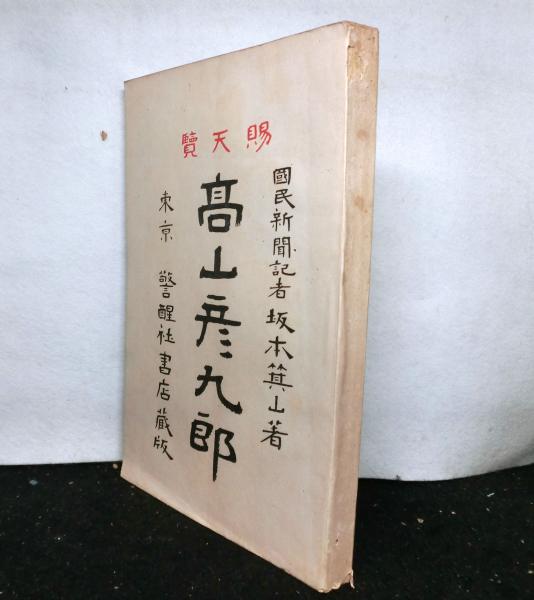 賜天覽
國民新聞記者 坂本箕山著
高山彦九郎
東京 警醒社書店藏版